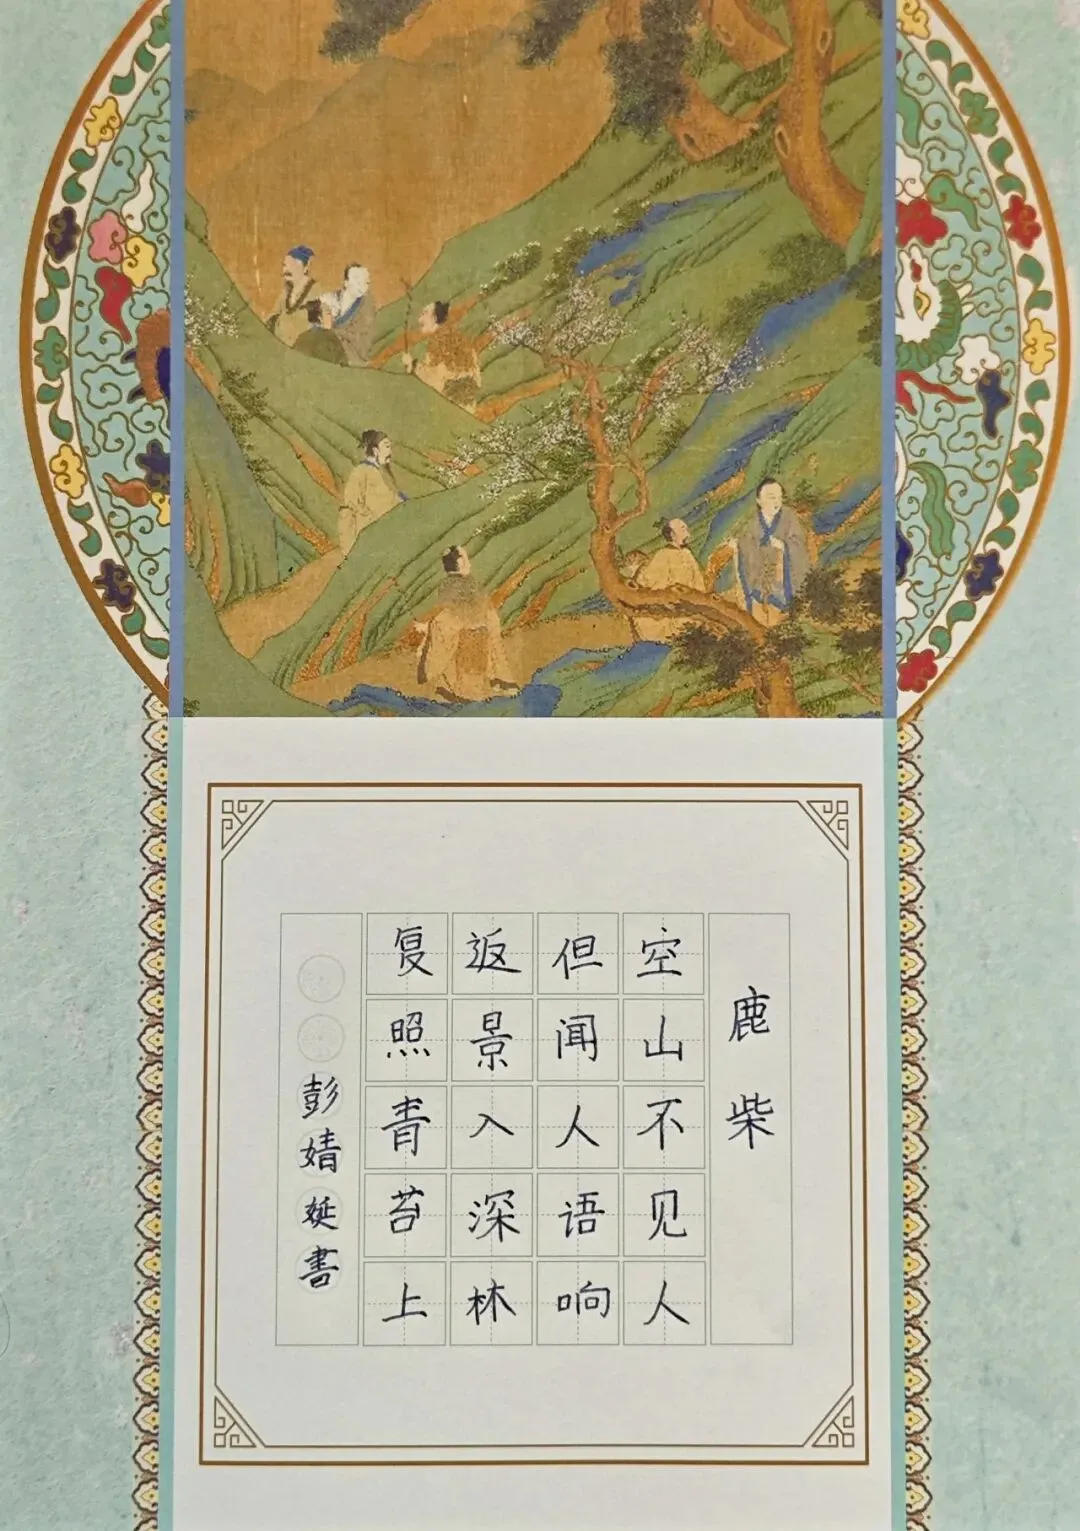 鹿柴
空山不见人
但闻人语响
返景入深林
复照青苔上
彭婧娫書